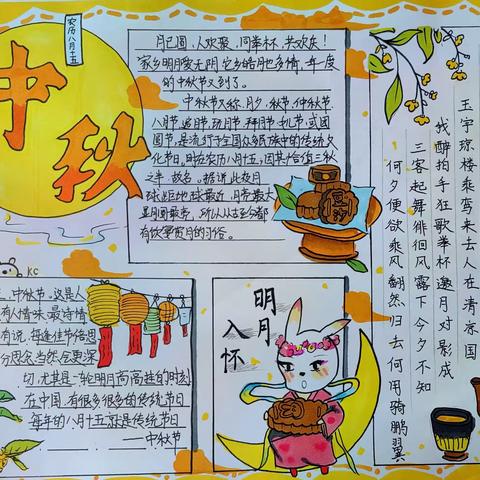 农历八月十五
中秋
月已圆,人欢聚,同举杯,共欢庆!
家乡明月
又到了。
的中秋节
中秋节又称,月夕,秋节,仲秋节
八月节,追月节,玩月节,拜月节
圆节,是流行于全国众多民族中的传统文
化节日。时在农历八月十五,因其恰值三秋
之半,故名。据说此夜月
球距地球最近,月亮最大
最圆最亮,所以从古至今都
有饮宴赏月的习俗。
玉宇琼楼乘鸾来去人在清凉国
我醉拍手狂歌举杯邀月对影成
三客起舞徘徊风露下今夕不知
何夕便欲乘风翻然归去何用骑鹏翼
KC
中秋节,这是人
有人情味、最诗情
有说,每逢佳节倍思
切,尤其是一轮明月高高挂的时刻
在中国,有很多很多的传统节日
每年的八月十五就是传统节日
——中秋节
明月
入怀